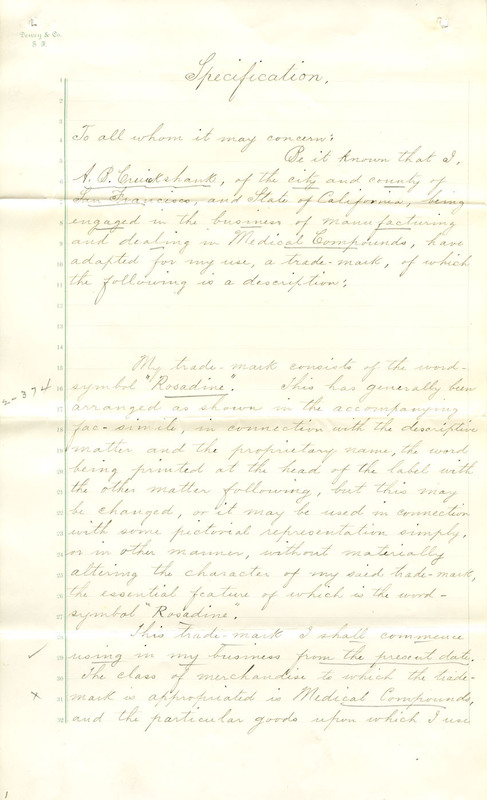 2
Dewey & Co.
S. F.
Specification.
To all whom it may concern:
Be it known that I,
A. B. Cruickshank, of the city and county of
San Francisco, and State of California, being
engaged in the business of manufacturing
and dealing in Medical Compounds, have
adapted for my use, a trade-mark, of which
the following is a description:
My trade-mark consists of the word-
symbol "Rosadine". This has generally been
2-374
arranged as shown in the accompanying
fac-simile, in connection with the descriptive
matter and the proprietary name, the word
being printed at the head of the label with
the other matter following, but this may
be changed, or it may be used in connection
with some pictorial representation simply,
or in other manner, without materially
altering the character of my said trade-mark,
the essential feature of which is the word-
symbol "Rosadine".
This trade-mark I shall commence
using in my business from the present date.
The class of merchandise to which the trade-
mark is appropriated is Medical Compounds,
and the particular goods upon which I use